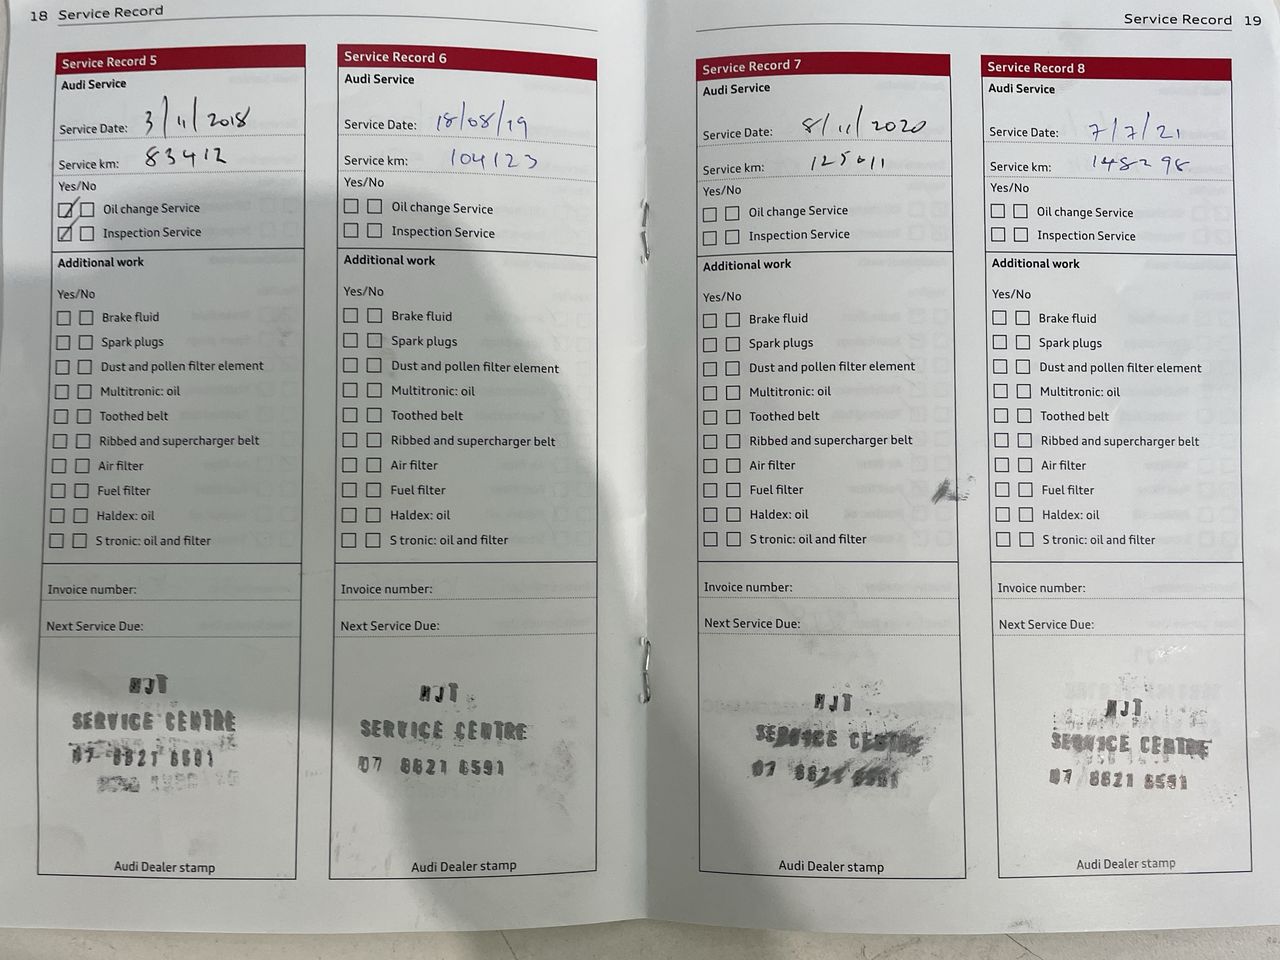 18 Service Record
Service Record 5
Audi Service
Service Date: 3/11/2018
Service km: 83412
Yes/No
Oil change Service
Inspection Service
Additional work
Yes/No
Brake fluid
Spark plugs
Dust and pollen filter element
Multitronic: oil
Toothed belt
Ribbed and supercharger belt
Air filter
Fuel filter
Haldex: oil
S tronic: oil and filter
Invoice number:
Next Service Due:
MJT
SERVICE CENTRE
Audi Dealer stamp
Service Record 6
Audi Service
Service Date: 18/08/19
Service km: 104123
Yes/No
Oil change Service
Inspection Service
Additional work
Yes/No
Brake fluid
Spark plugs
Dust and pollen filter element
Multitronic: oil
Toothed belt
Ribbed and supercharger belt
Air filter
Fuel filter
Haldex: oil
S tronic: oil and filter
Invoice number:
Next Service Due:
MJT
SERVICE CENTRE
07 8821 6591
Audi Dealer stamp
Service Record 19
Service Record 7
Audi Service
Service Date: 8/11/2020
Service km: 125011
Yes/No
Oil change Service
Inspection Service
Additional work
Yes/No
Brake fluid
Spark plugs
Dust and pollen filter element
Multitronic: oil
Toothed belt
Ribbed and supercharger belt
Air filter
Fuel filter
Haldex: oil
S tronic: oil and filter
Invoice number:
Next Service Due:
MJT
SERVICE CENTRE
Audi Dealer stamp
Service Record 8
Audi Service
Service Date: 7/7/21
Service km: 148298
Yes/No
Oil change Service
Inspection Service
Additional work
Yes/No
Brake fluid
Spark plugs
Dust and pollen filter element
Multitronic: oil
Toothed belt
Ribbed and supercharger belt
Air filter
Fuel filter
Haldex: oil
S tronic: oil and filter
Invoice number:
Next Service Due:
MJT
SERVICE CENTRE
07 8821 6591
Audi Dealer stamp